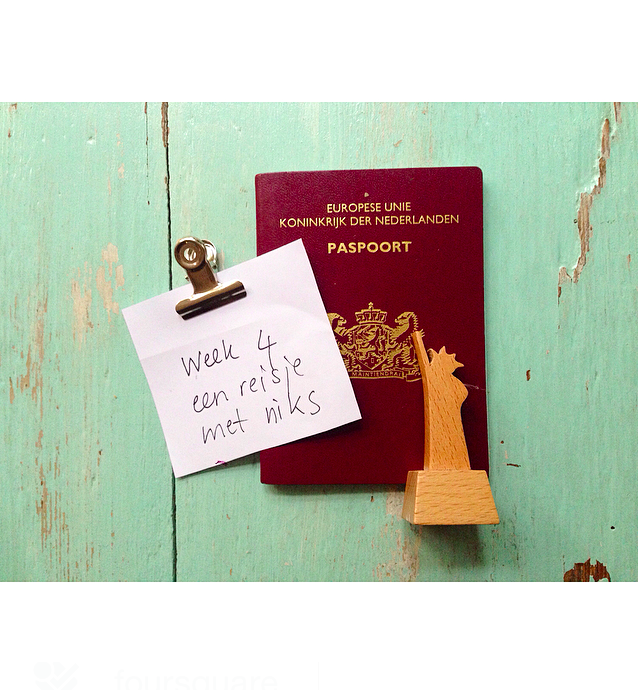 EUROPESE UNIE
KONINKRIJK DER NEDERLANDEN
PASPOORT
MAINTIENDRAI
Week 4
een reisje
met niks
foursquare